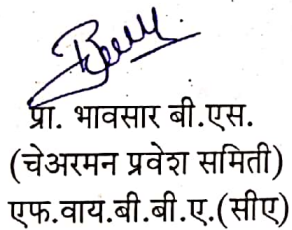 प्रा. भावसार बी.एस.
(चेअरमन प्रवेश समिती)
एफ.वाय.बी.बी.ए.(सीए)